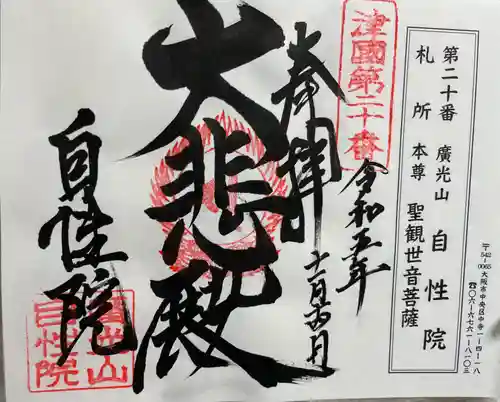 第二十番 廣光山 自性院
札所本尊 聖観世音菩薩
〒542-0065 大阪市中央区中寺一-四-一八
☎〇六-六七六一-八一〇三
津國第二十番
奉拝
令和五年
大悲殿
自性院
廣光山
自性院